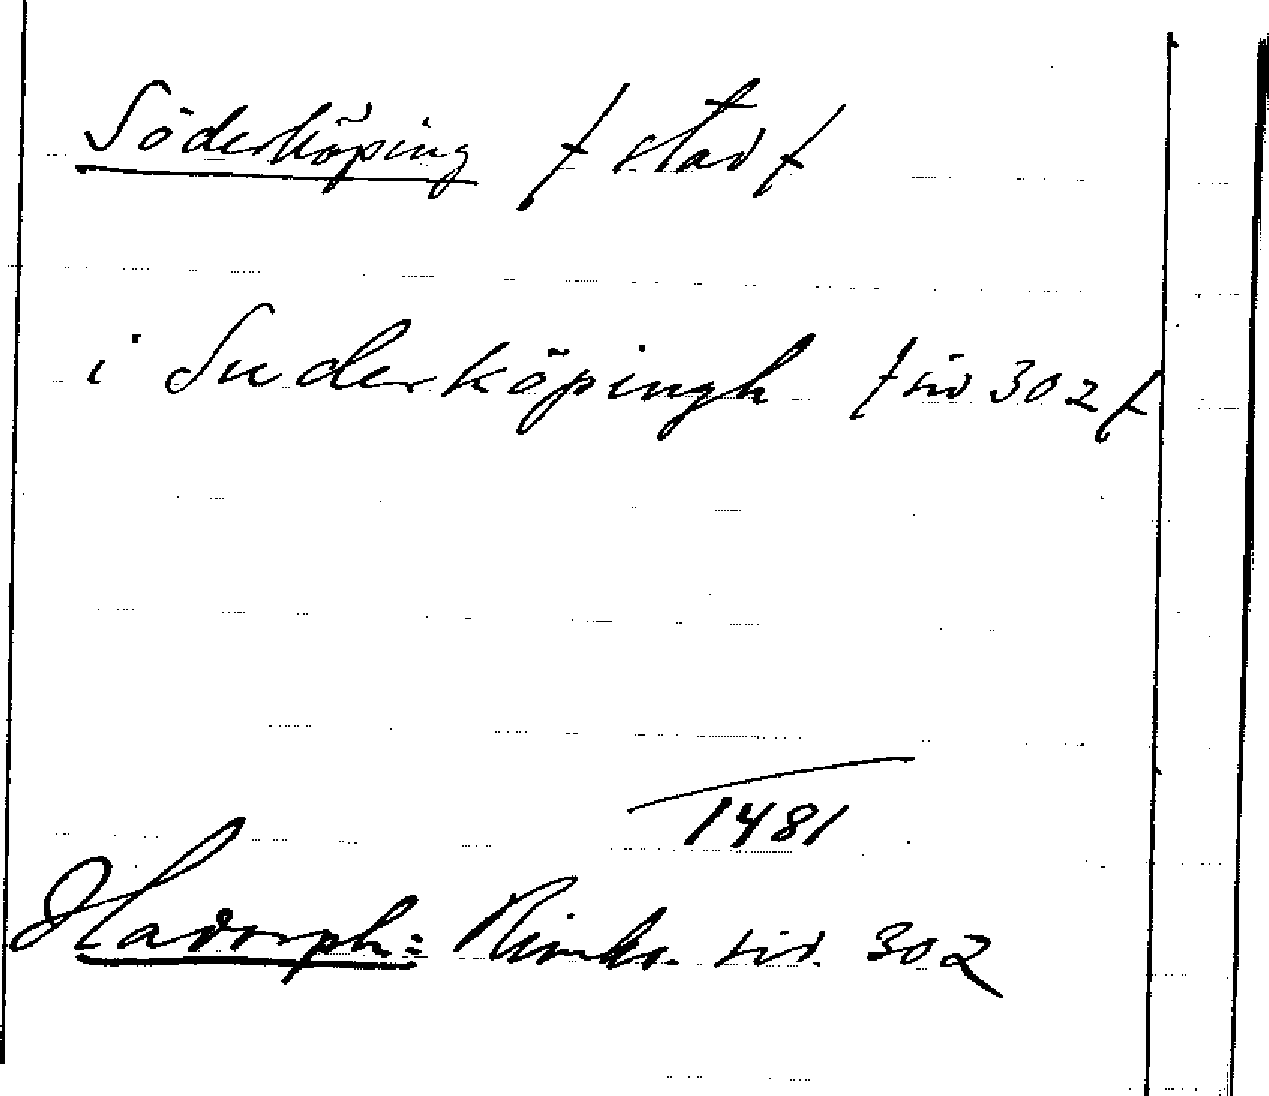 Söderköping / stad /
i Suderköpingh / sid 302 /
1481
Hadorph: Rimkr. sid. 302